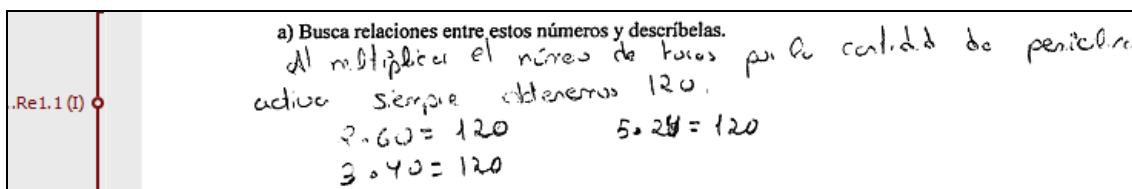 a) Busca relaciones entre estos números y descríbelas.
Al multiplicar el número de tomas por la cantidad de penicilina
activa siempre obtenemos 120.
..Re1.1 (I)
2.60 = 120 5.24 = 120
3.40 = 120